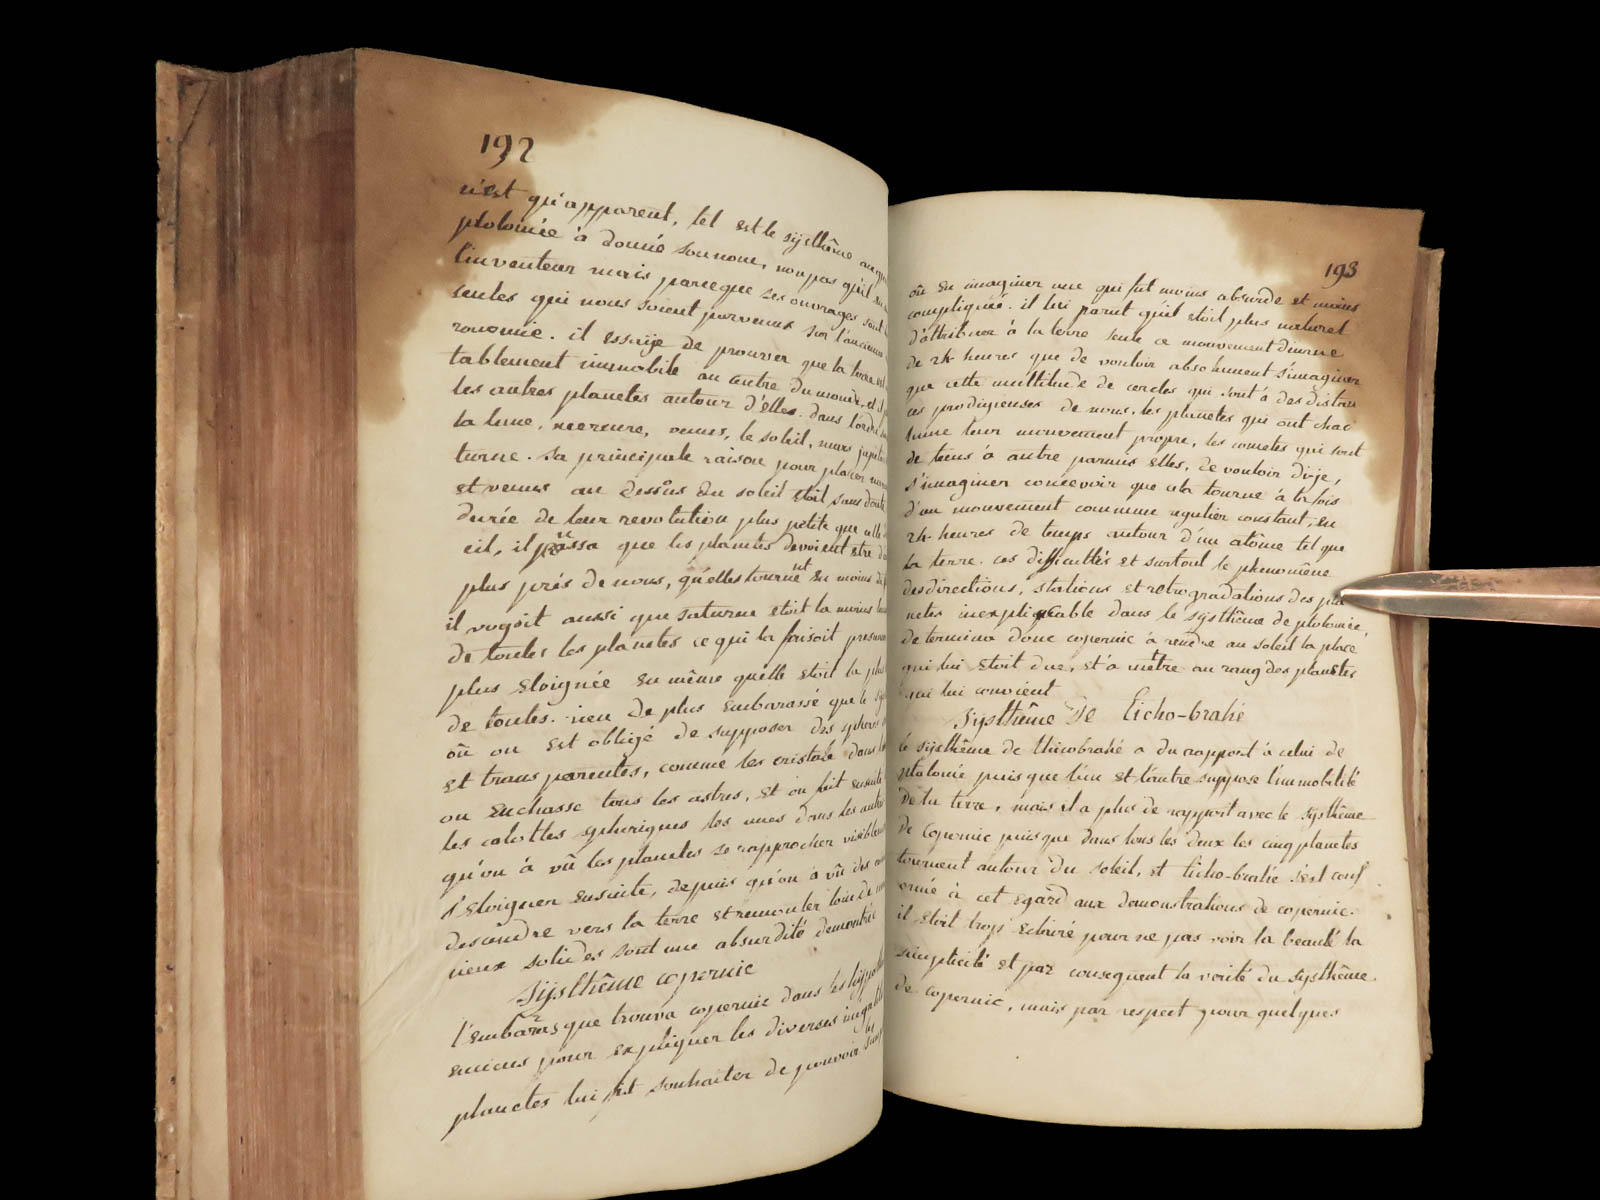 192
n'est qu'apparent, tel est le systhême auqu
ptolomée à donné son nom, non pas qu'il en
l'inventeur mais parceque ses ouvrages sont l
seules qui nous soient parvenus sur l'ancienne
ronomie. il essaye de prouver que la terre est
tablement immobile au centre du monde, et il
les autres planetes autour d'elles. dans l'ordre
la lune, mercure, venus, le soleil, mars jupite
turne. sa principale raison pour placer mer
et venus au dessous du soleil étoit sans doute
durée de leur revolution plus petite que celle d
eil, il pensa que les planetes devoient etre d
plus près de nous, qu'elles tournent en moins de
il voyoit aussi que saturne etoit la moins
de toutes les planetes ce qui la faisoit presumer
plus eloignée en même quelle etoit la plus
de toutes. rien de plus embarassé que le sys
où on est obligé de supposer des spheres
et transparentes, comme les cristale dans
on enchasse tous les astres, et on fait ensuite
les calottes spheriques les unes dans les autres
qu'on à vû les planetes se rapprocher visiblem
s'eloigner ensuite, depuis qu'on à vû des com
descendre vers la terre et remonter loin de nou
cieux solides sont une absurdité demontré
Systhême copernic
l'embaras que trouva copernic dans les hypoth
anciens pour expliquer les diverses inegalités
planetes lui fit souhaiter de pouvoir
193
où en imaginer une qui fut moins absurde et moins
compliqueé. il lui parut qu'il etoit plus naturel
d'attribuer à la terre seule ce mouvement diurne
de 24 heures que de vouloir absolument s'imaginer
que cette multitude de cercles qui sont à des distan
ces prodigieuses de nous, les planetes qui ont chac
cune leur mouvement propre, les cometes qui sont
de tems à autre parmis elles, de vouloir dis je,
s'imaginer concevoir que cela tourne à la fois
d'un mouvement commun regulier constant, en
24 heures de temps autour d'un atôme tel que
la terre. ces difficultés et surtout le phenomène
des directions, stations et retrogradations des pla
netes inexpliquable dans le systhême de ptolomée,
determina donc copernic à rendre au soleil la place
qui lui etoit due, et à mettre au rang des planetes
qui lui convient
Systhême de Ticho-brahé
le systhême de thicobrahé a du rapport à celui de
ptolomé puisque l'un et l'autre suppose l'immobilité
de la terre, mais il a plus de rapport avec le systhême
de Copernic puisque dans tous les deux les cinq planetes
tournent autour du soleil, et ticho-brahé s'est conf
ormé à cet egard aux demonstrations de copernic.
il etoit trop eclairé pour ne pas voir la beauté la
simplicité et par consequent la verité du systhême
de copernic, mais par respect pour quelques